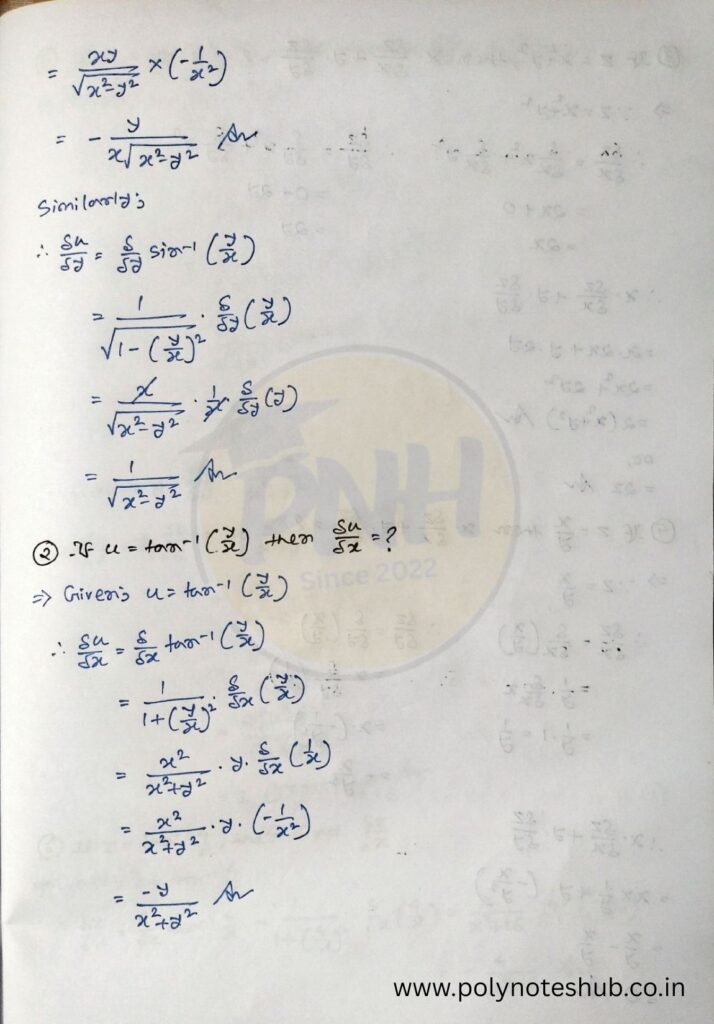 = xy/√(x²-y²) × (-1/x²)
= - y/(x√(x²-y²)) Ans
Similarly;
∴ δu/δy = δ/δy sin⁻¹ (y/x)
= 1/√(1-(y/x)²) · δ/δy (y/x)
= x/√(x²-y²) · 1/x · δ/δy (y)
= 1/√(x²-y²) Ans
② If u = tan⁻¹ (y/x) then δu/δx = ?
⇒ Given; u = tan⁻¹ (y/x)
∴ δu/δx = δ/δx tan⁻¹ (y/x)
= 1/(1+(y/x)²) · δ/δx (y/x)
= x²/(x²+y²) · y · δ/δx (1/x)
= x²/(x²+y²) · y · (-1/x²)
= -y/(x²+y²) Ans
PNH
Since 2022
www.polynoteshub.co.in